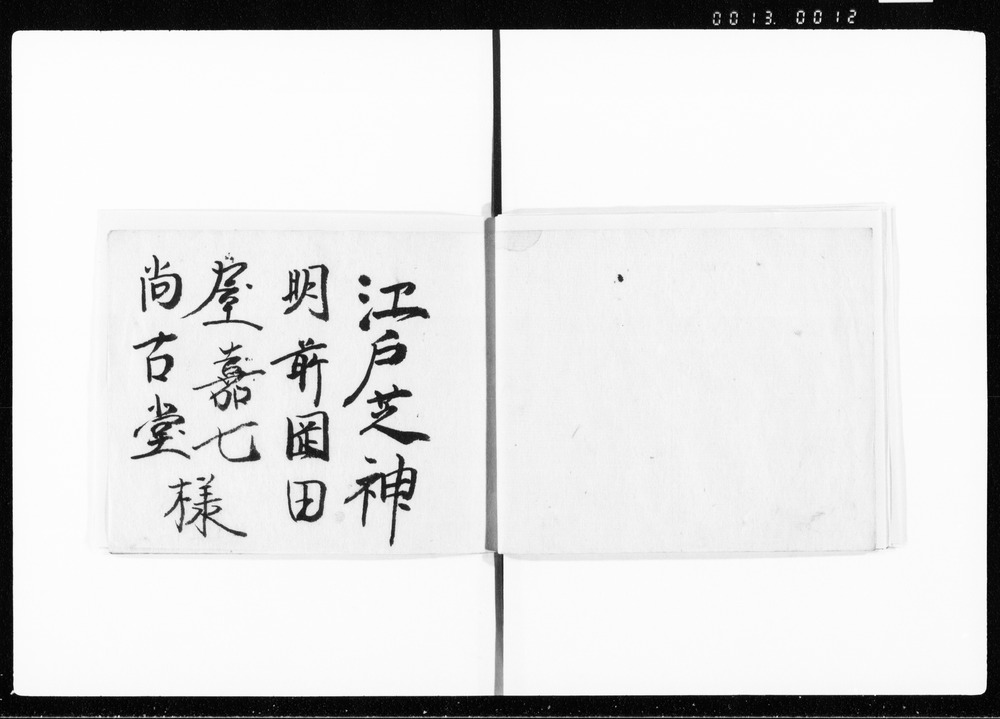 0013. 0012
江戸芝神
明前岡田
屋嘉七
尚古堂
様